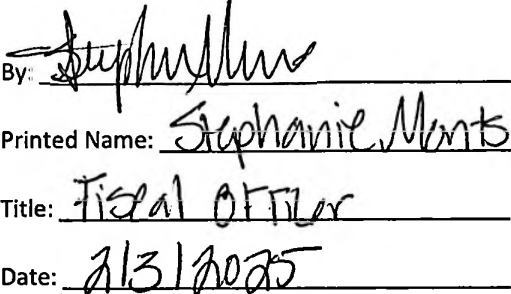 By:
Printed Name: Stephanie Monts
Title: Fiscal Officer
Date: 2/3/2025